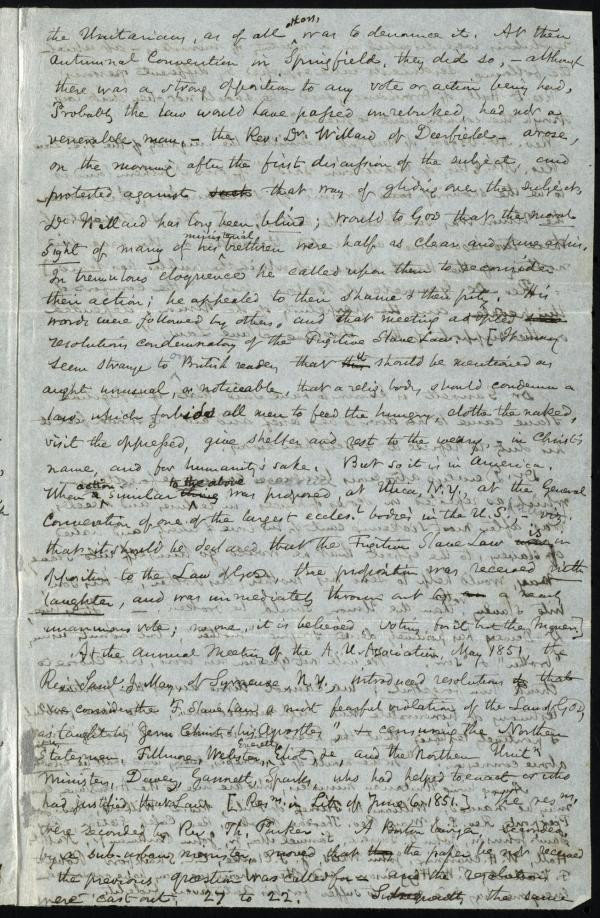 the Unitarians, as of all others, was to denounce it. At their
autumnal Convention in Springfield, they did so, – although
there was a strong opposition to any vote or action being had.
Probably the law would have passed unrebuked had not a
venerable man, – the Rev. Dr. Willard of Deerfield – arose,
on the morning after the first discussion of the subject, and
protested against such that way of gliding over the subject.
Dr. Willard has long been blind; would to God that the moral
sight of many of his ministerial brethren were half as clear and pure as his.
In tremulous eloquence he called upon them to reconsider
their action; he appealed to their shame & their pity. His
words were followed by others, and that meeting adopted
resolutions condemnatory of the Fugitive Slave Law. [It may
seem strange to British readers that it should be mentioned as
aught unusual or noticeable, that a relig. body should condemn a
law which forbids all men to feed the hungry, clothe the naked,
visit the oppressed, give shelter and rest to the weary, – in Christ's
name, and for humanity's sake. But so it is in America.
When action similar to the above thing was proposed, at Utica, N.Y., at the General
Convention of one of the largest eccles.l bodies in the U.S. – viz.
that it should be declared that the Fugitive Slave Law is in
opposition to the Law of God, the proposition was received with
laughter, and was immediately thrown out by a nearly
unanimous vote; no one, it is believed voting for it but the mover.]
At the annual Meeting of the A. U. Association, May 1851, the
Rev. Saml. J. May, of Syracuse N.Y. introduced resolutions that
"we consider the F. Slave Law a most fearful violation of the Law of God,
as taught by Jesus Christ & his Apostles," & censuring the Northern
Statesmen, Fillmore, Webster, Everett, &c, and the Northern Unitn
Ministers, Dewey, Gannett, Sparks, who had helped to enact or who
had justified that Law [Resns. in Lib. of June 6, 1851. The resns.
were seconded by Rev. Th. Parker. A Boston lawyer, seconded
by a suburban minister, moved that the paper be not received
the previous question was called for – and the resolutions
were cast out. 27 to 22. Subsequently the same